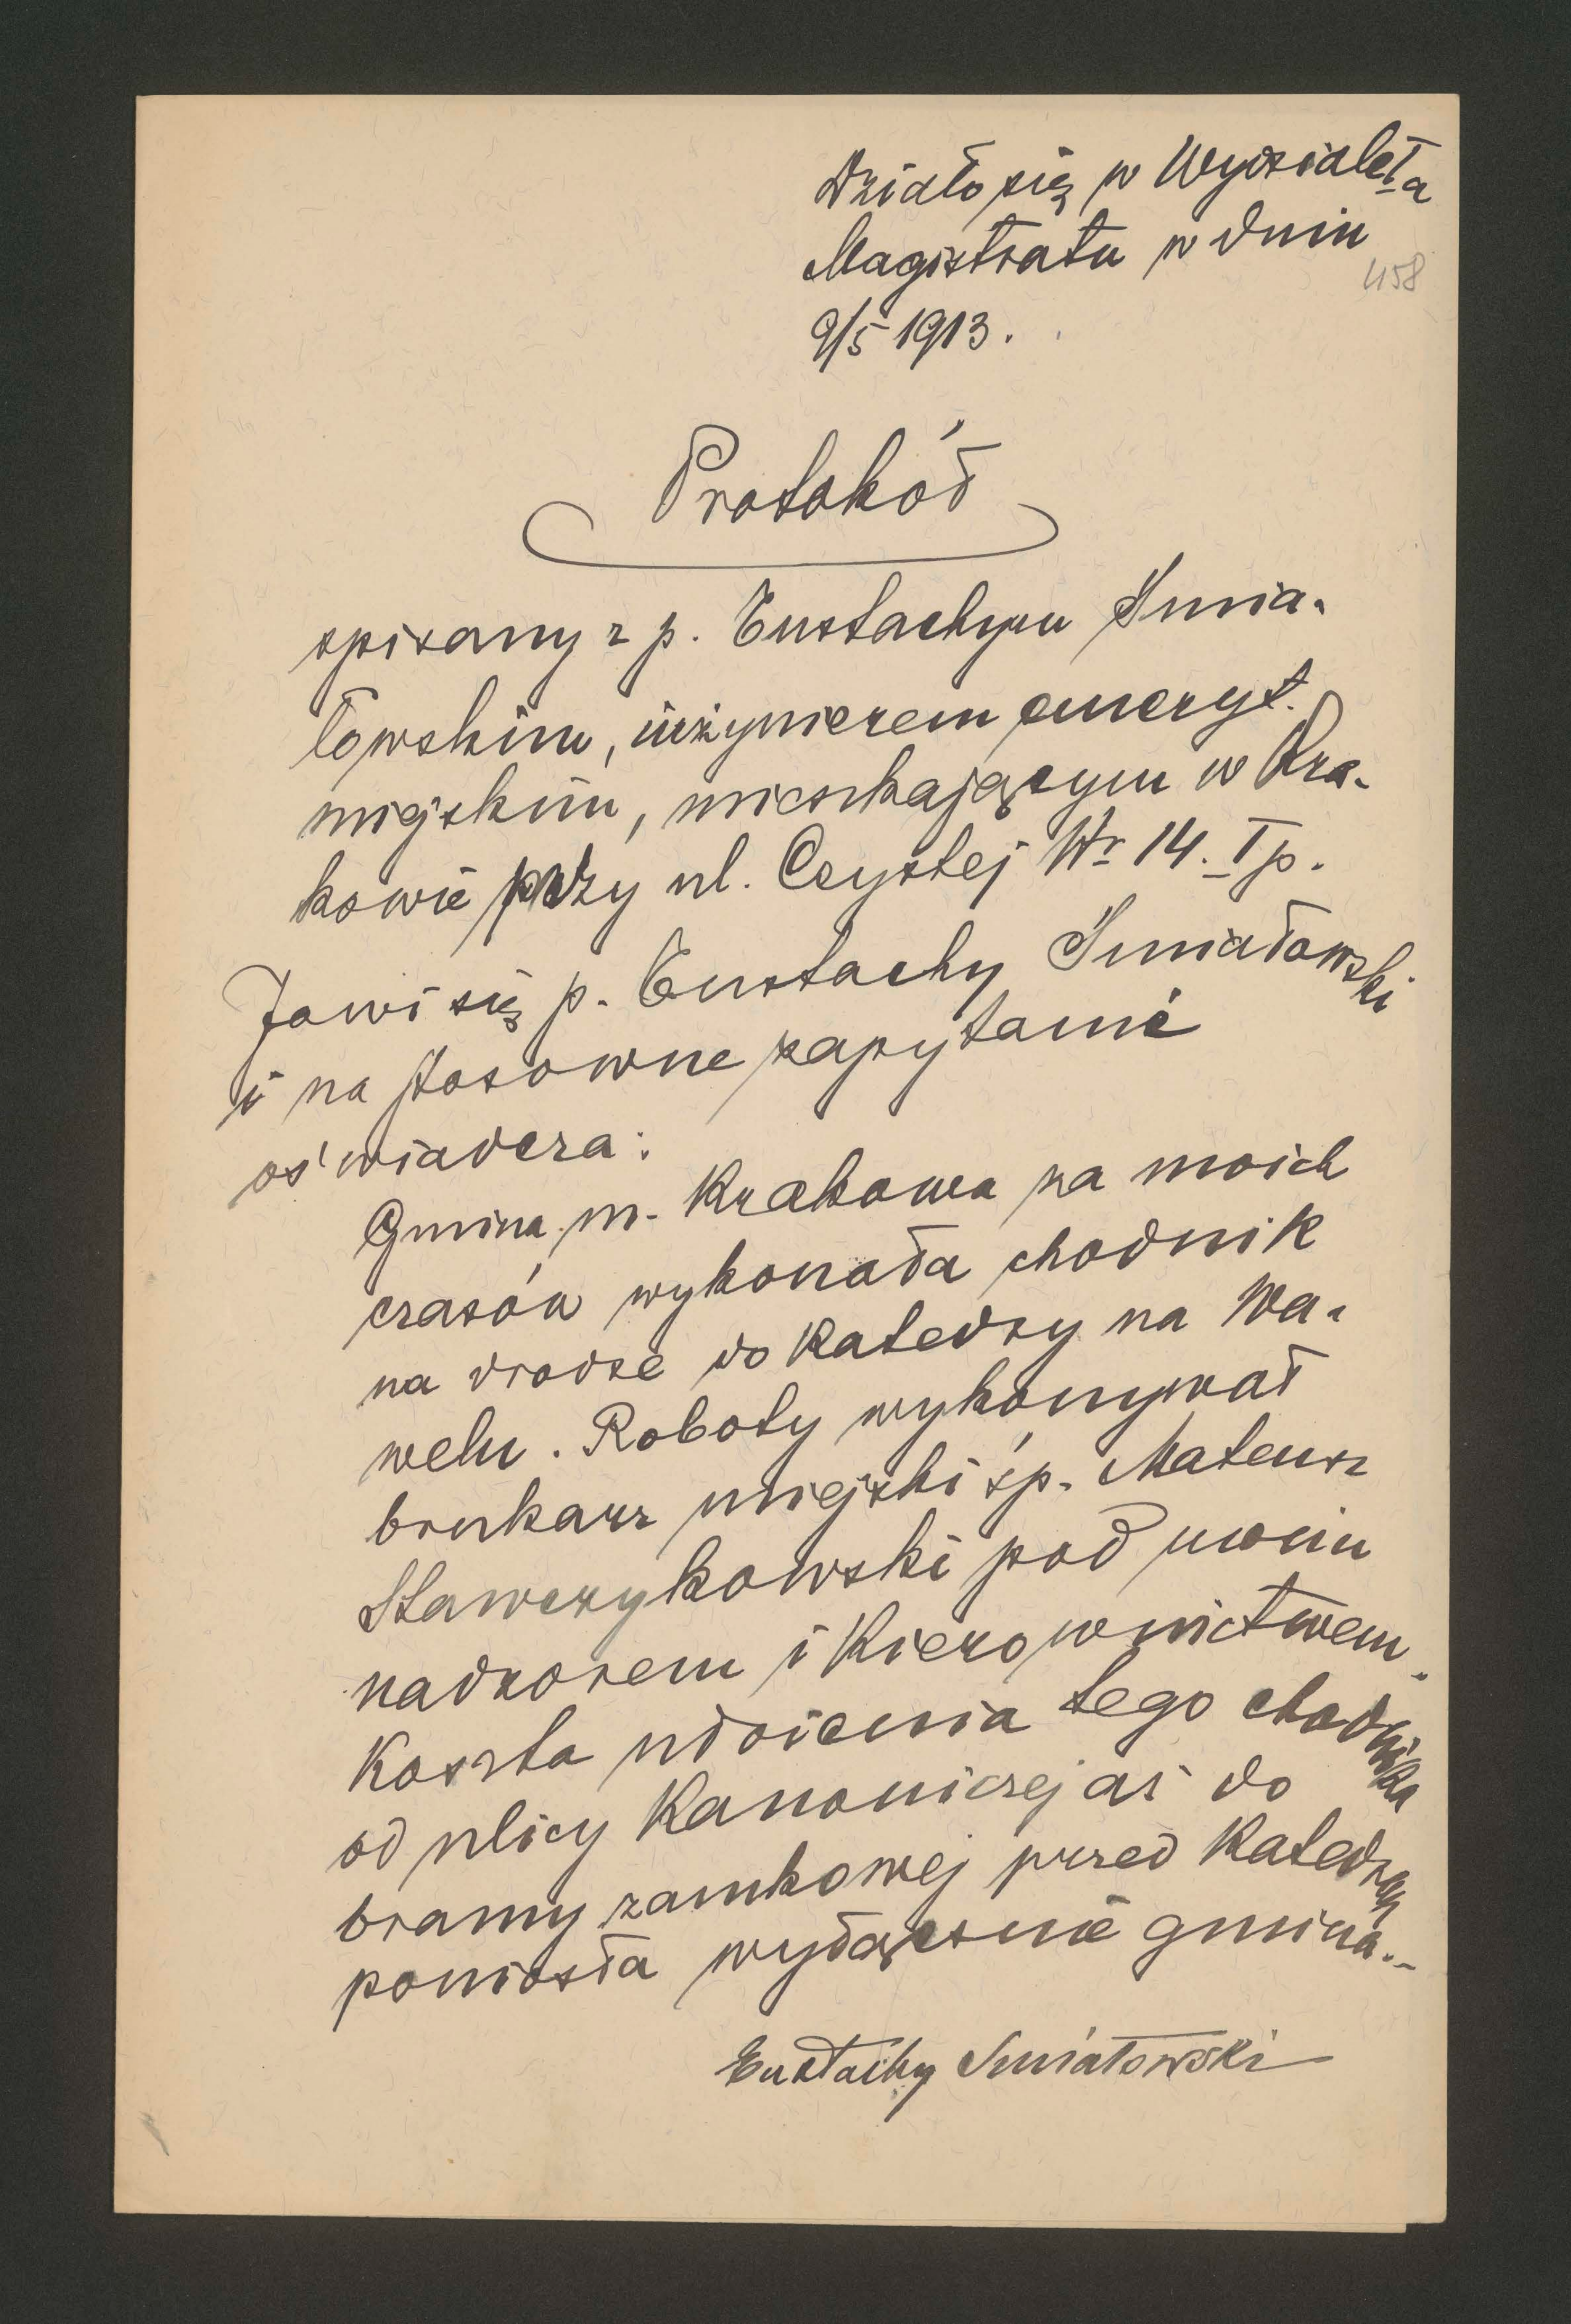 Działo się w Wydziale I a
Magistratu w dniu
458
9/5 1913.
Protokół
spisany z p. Eustachym Śmia-
łowskim, inżynierem emeryt.
miejskim, mieszkającym w Kra-
kowie przy ul. Czystej Nr 14. I p.
Jawi się p. Eustachy Śmiałowski
i na stosowne zapytanie
oświadcza:
Gmina m. Krakowa za moich
czasów wykonała chodnik
na drodze do Katedry na Wa-
welu. Roboty wykonywał
brukarz miejski śp. Mateusz
Stawczykowski pod moim
nadzorem i Kierownictwem.
Koszta ułożenia tego chodnika
od ulicy Kanoniczej aż do
bramy zamkowej przed Katedrą
poniosła wyłącznie gmina.-
Eustachy Śmiałowski